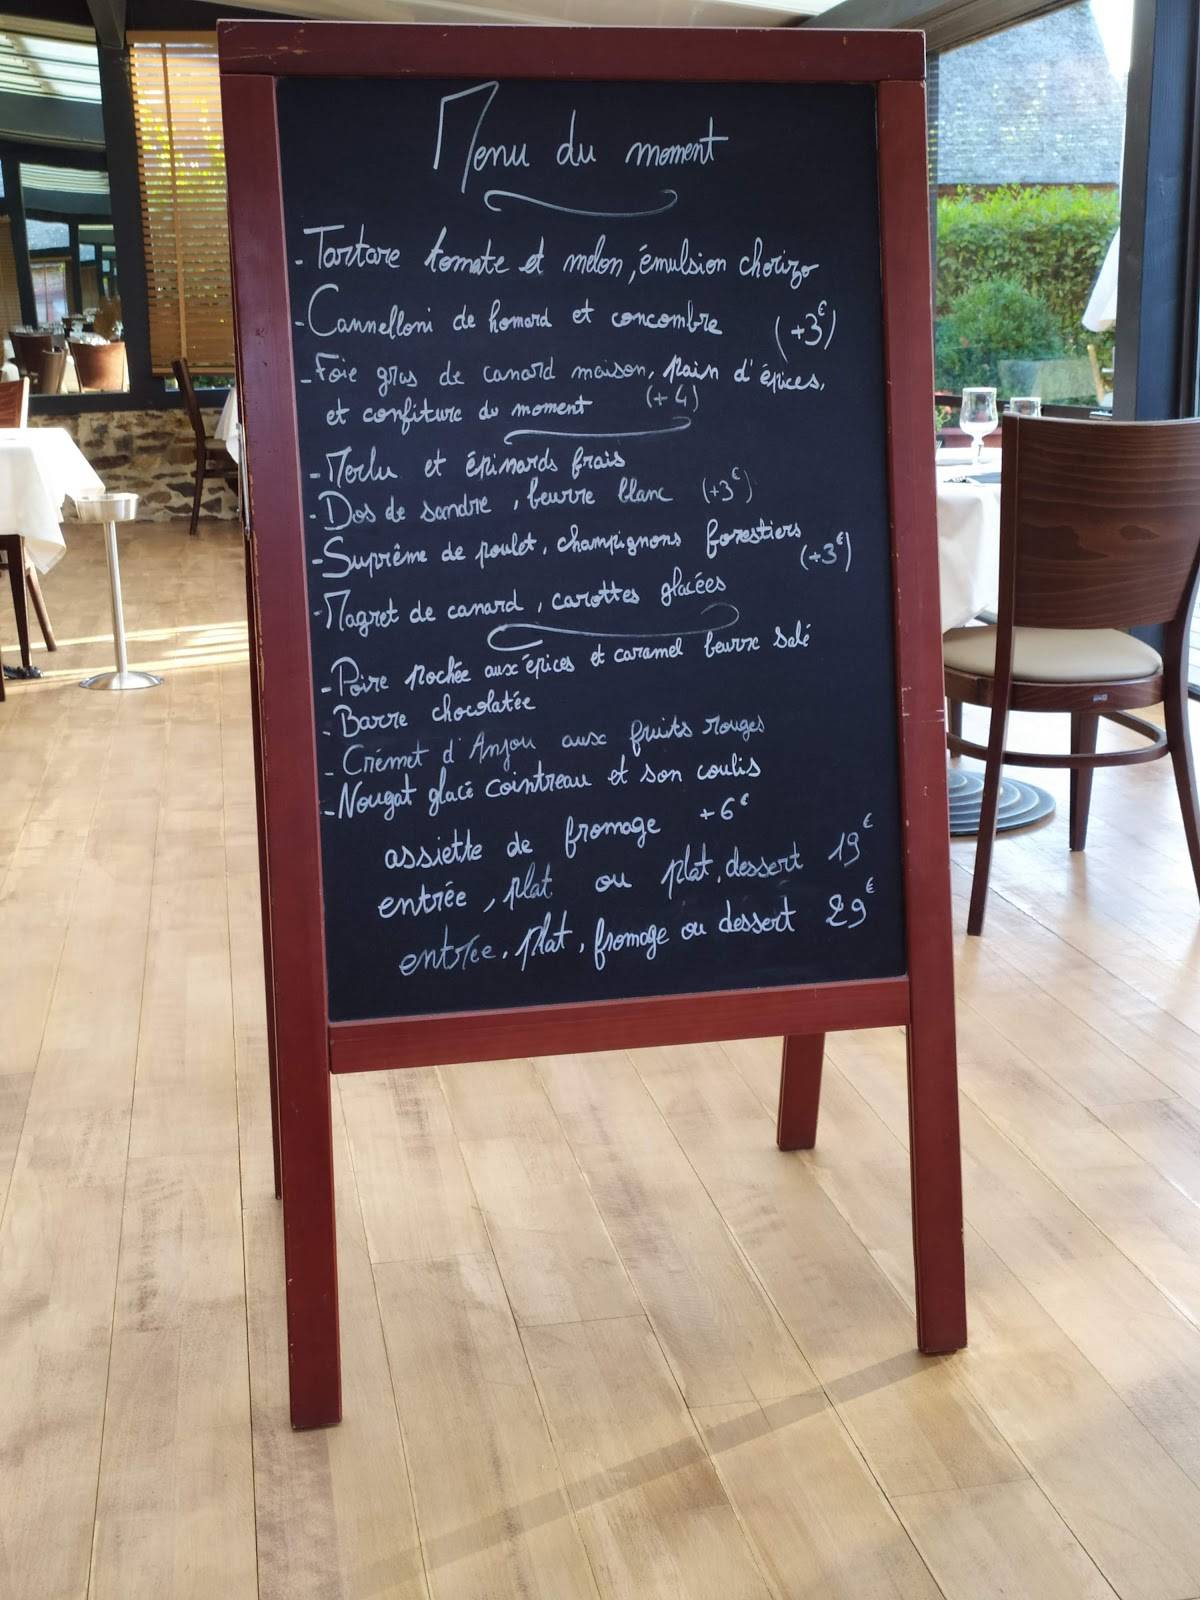 Menu du moment
- Tartare tomate et melon, émulsion chorizo
- Cannelloni de homard et concombre (+3€)
- Foie gras de canard maison, pain d'épices,
et confiture du moment (+4)
- Merlu et épinards frais
- Dos de sandre, beurre blanc (+3€)
- Suprême de poulet, champignons forestiers
(+3€)
- Magret de canard, carottes glacées
- Poire pochée aux épices et caramel beurre salé
- Barre chocolatée
- Crémet d'Anjou aux fruits rouges
- Nougat glacé cointreau et son coulis
assiette de fromage +6€
entrée, plat ou plat, dessert 19€
entrée, plat, fromage ou dessert 29€